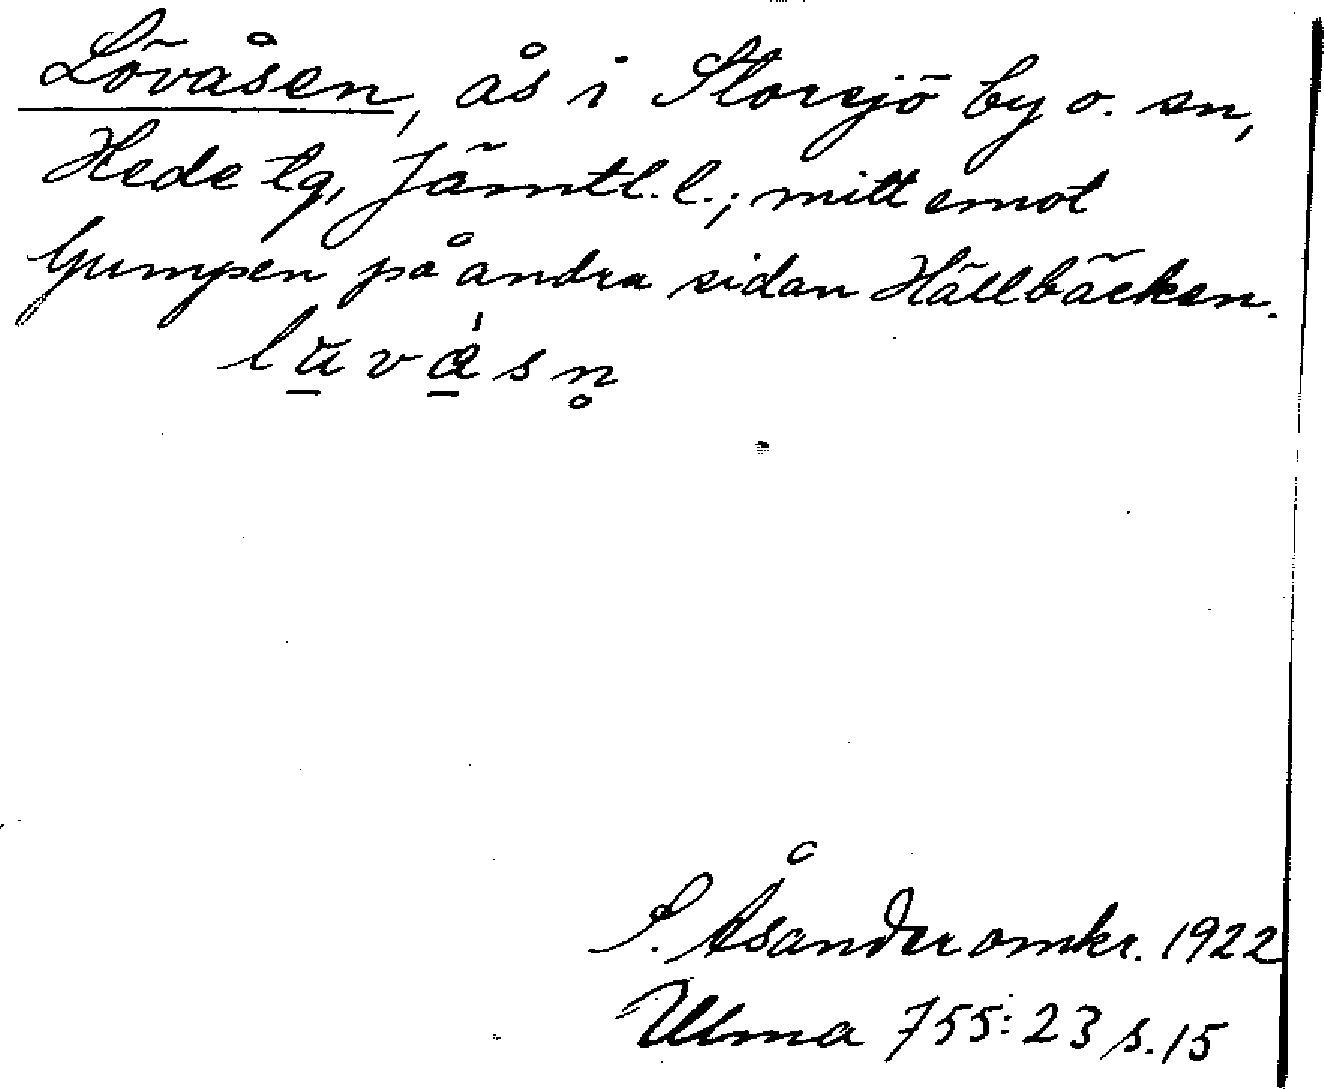 Lövåsen, ås i Storsjö by o. sn,
Hede tg, Jämtl. l.; mitt emot
Gumpen på andra sidan Hällbäcken.
S. Åsander omkr. 1922
Ulma 755:23 s. 15